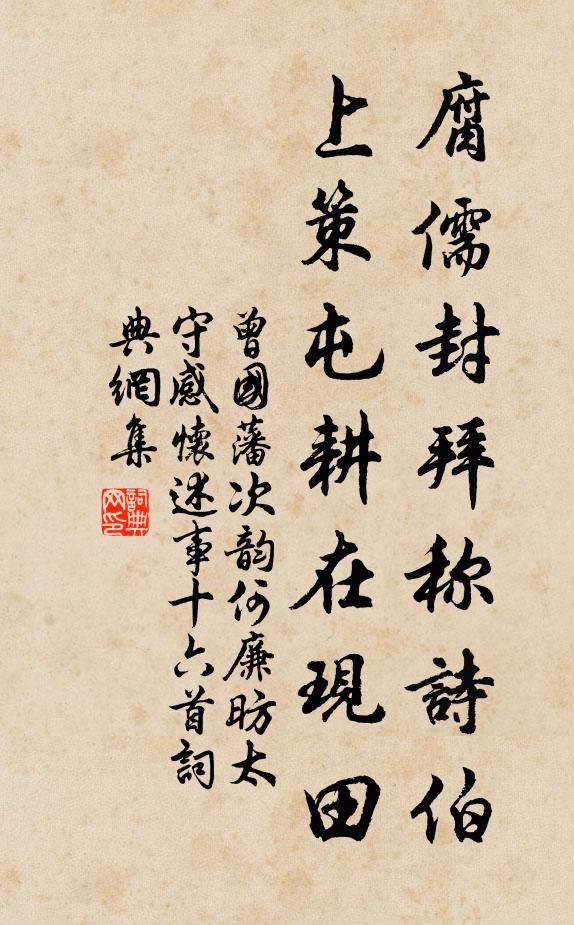 腐儒封拜称詩伯
上策屯耕在現田
曾國藩次韵何廉昉太
守感懷述事十六首詞
典網集
詞典
网印